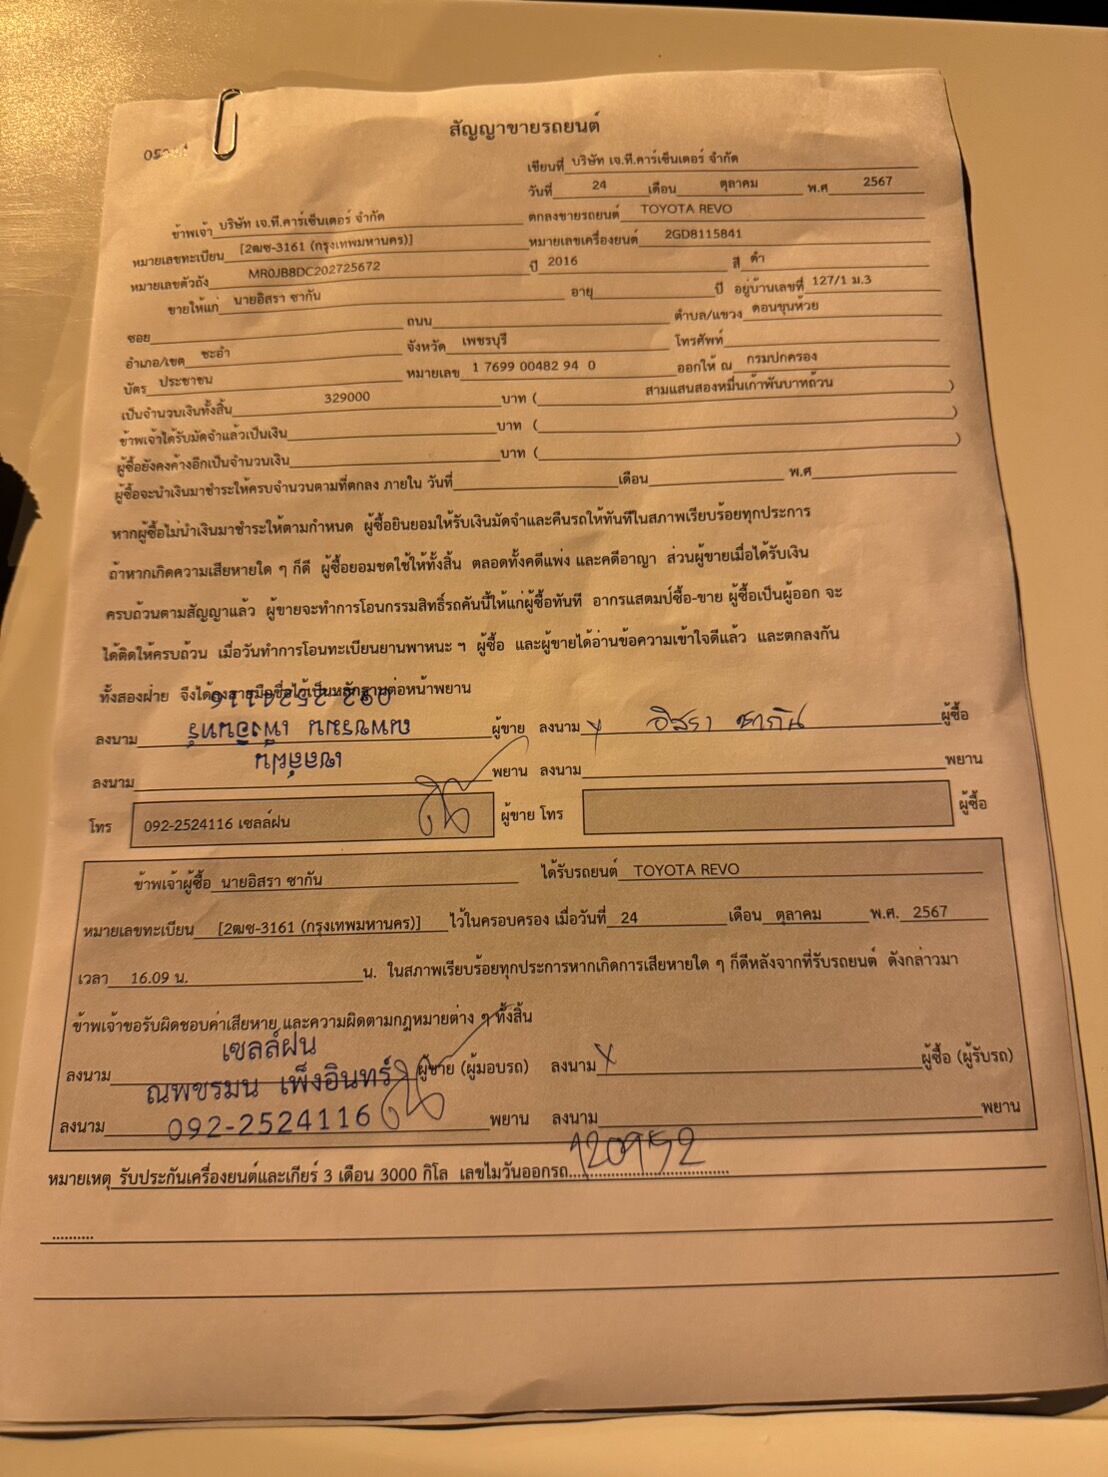 สัญญาขายรถยนต์
เขียนที่ บริษัท เจ.ที.คาร์เซ็นเตอร์ จำกัด
วันที่ 24 เดือน ตุลาคม พ.ศ 2567
ข้าพเจ้า บริษัท เจ.ที.คาร์เซ็นเตอร์ จำกัด ตกลงขายรถยนต์ TOYOTA REVO
หมายเลขทะเบียน [2ฒซ-3161 (กรุงเทพมหานคร)] หมายเลขเครื่องยนต์ 2GD8115841
หมายเลขตัวถัง MR0JB8DC202725672 ปี 2016 สี ดำ
ขายให้แก่ นายอิสรา ซากัน อายุ ปี อยู่บ้านเลขที่ 127/1 ม.3
ซอย ถนน ตำบล/แขวง ดอนขุนห้วย
อำเภอ/เขต ชะอำ จังหวัด เพชรบุรี โทรศัพท์
บัตร ประชาชน หมายเลข 1 7699 00482 94 0 ออกให้ ณ กรมปกครอง
เป็นจำนวนเงินทั้งสิ้น 329000 บาท ( สามแสนสองหมื่นเก้าพันบาทถ้วน )
ข้าพเจ้าได้รับมัดจำแล้วเป็นเงิน บาท ( )
ผู้ซื้อยังคงค้างอีกเป็นจำนวนเงิน บาท ( )
ผู้ซื้อจะนำเงินมาชำระให้ครบจำนวนตามที่ตกลง ภายใน วันที่ เดือน พ.ศ
หากผู้ซื้อไม่นำเงินมาชำระให้ตามกำหนด ผู้ซื้อยินยอมให้รับเงินมัดจำและคืนรถให้ทันทีในสภาพเรียบร้อยทุกประการ
ถ้าหากเกิดความเสียหายใด ๆ ก็ดี ผู้ซื้อยอมชดใช้ให้ทั้งสิ้น ตลอดทั้งคดีแพ่ง และคดีอาญา ส่วนผู้ขายเมื่อได้รับเงิน
ครบถ้วนตามสัญญาแล้ว ผู้ขายจะทำการโอนกรรมสิทธิ์รถคันนี้ให้แก่ผู้ซื้อทันที อากรแสตมป์ซื้อ-ขาย ผู้ซื้อเป็นผู้ออก จะ
ได้ติดให้ครบถ้วน เมื่อวันทำการโอนทะเบียนยานพาหนะ ฯ ผู้ซื้อ และผู้ขายได้อ่านข้อความเข้าใจดีแล้ว และตกลงกัน
ทั้งสองฝ่าย จึงได้ลงลายมือชื่อไว้เป็นหลักฐานต่อหน้าพยาน
092-2524116
ลงนาม ณพชรมน เพ็งอินทร์ ผู้ขาย ลงนาม x อิสรา ซากัน ผู้ซื้อ
เซลล์ฝน
ลงนาม พยาน ลงนาม พยาน
โทร 092-2524116 เซลล์ฝน ผู้ขาย โทร ผู้ซื้อ
ข้าพเจ้าผู้ซื้อ นายอิสรา ซากัน ได้รับรถยนต์ TOYOTA REVO
หมายเลขทะเบียน [2ฒซ-3161 (กรุงเทพมหานคร)] ไว้ในครอบครอง เมื่อวันที่ 24 เดือน ตุลาคม พ.ศ. 2567
เวลา 16.09 น. น. ในสภาพเรียบร้อยทุกประการหากเกิดการเสียหายใด ๆ ก็ดีหลังจากที่รับรถยนต์ ดังกล่าวมา
ข้าพเจ้าขอรับผิดชอบค่าเสียหาย และความผิดตามกฎหมายต่าง ๆ ทั้งสิ้น
เซลล์ฝน
ลงนาม ณพชรมน เพ็งอินทร์ ผู้ขาย (ผู้มอบรถ) ลงนาม x ผู้ซื้อ (ผู้รับรถ)
ลงนาม 092-2524116 พยาน ลงนาม พยาน
หมายเหตุ รับประกันเครื่องยนต์และเกียร์ 3 เดือน 3000 กิโล เลขไมวันออกรถ